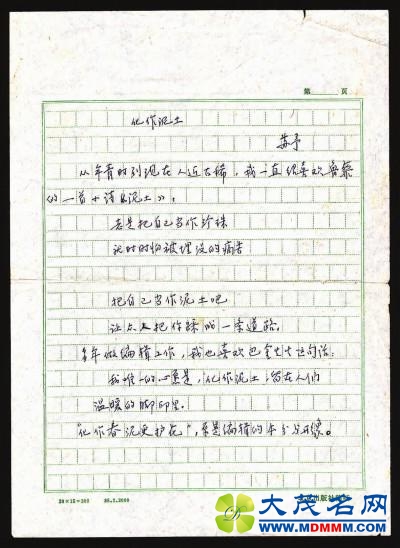 第 页
化作泥土
苏予
从年青时到现在人近古稀，我一直很喜欢鲁藜
的一首小诗《泥土》：
老是把自己当作珍珠
就时时怕被埋没的痛苦
把自己当作泥土吧
让众人把你踩成一条道路。
多年做编辑工作，我也喜欢巴金的这句话：
我唯一的心愿是，化作泥土，留在人们
温暖的脚印里。
"化作春泥更护花"，气是编辑的本分与形像。
20×15=300
出版社
大茂名网
WWW.MDMMM.COM